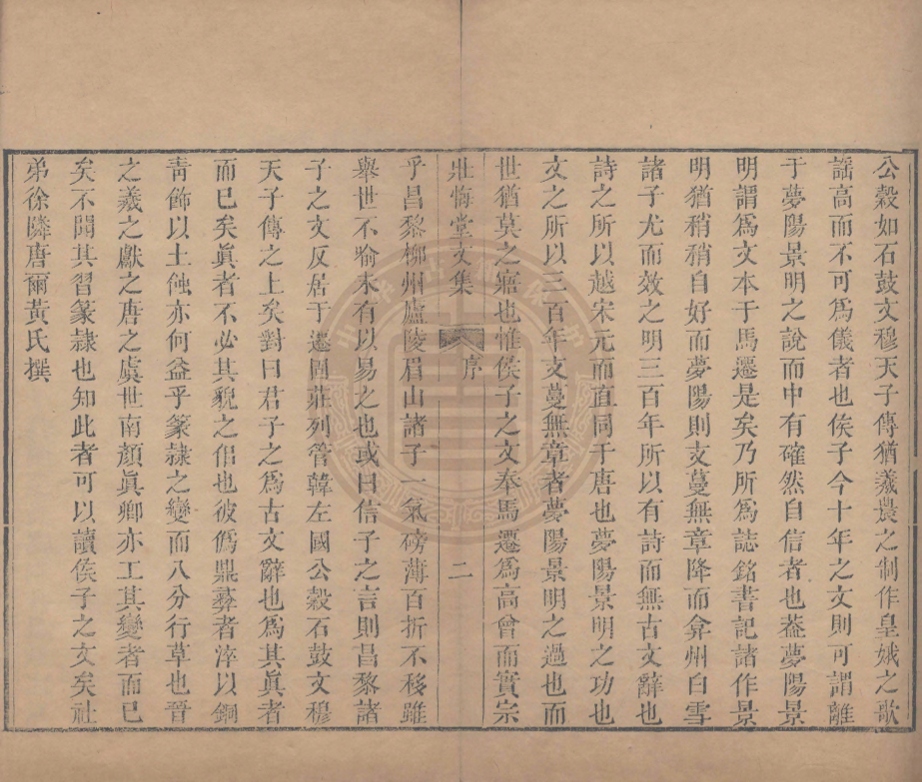 公穀如石鼓文穆天子傳猶羲農之制作皇娥之歌
謠高而不可爲儀者也侯子今十年之文則可謂離
于夢陽景明之說而中有確然自信者也葢夢陽景
明謂爲文本于馬遷是矣乃所爲誌銘書記諸作景
明猶稍稍自好而夢陽則支蔓無章降而弇州白雪
諸子尤而效之明三百年所以有詩而無古文辭也
詩之所以越宋元而直同于唐也夢陽景明之功也
文之所以三百年支蔓無章者夢陽景明之過也而
世猶莫之寤也惟侯子之文奉馬遷爲高曾而實宗
壯悔堂文集 序 二
乎昌黎柳州廬陵眉山諸子一氣磅薄百折不移雖
舉世不喻未有以易之也或曰信子之言則昌黎諸
子之文反居于遷固莊列管韓左國公穀石鼓文穆
天子傳之上矣對曰君子之爲古文辭也爲其眞者
而已矣眞者不必其貌之佀也彼僞鼎彝者淬以銅
靑飾以土蝕亦何益乎篆隷之變而八分行草也晉
之羲之獻之唐之虞世南顏眞卿亦工其變者而已
矣不聞其習篆隷也知此者可以讀侯子之文矣社
弟徐隣唐爾黃氏撰